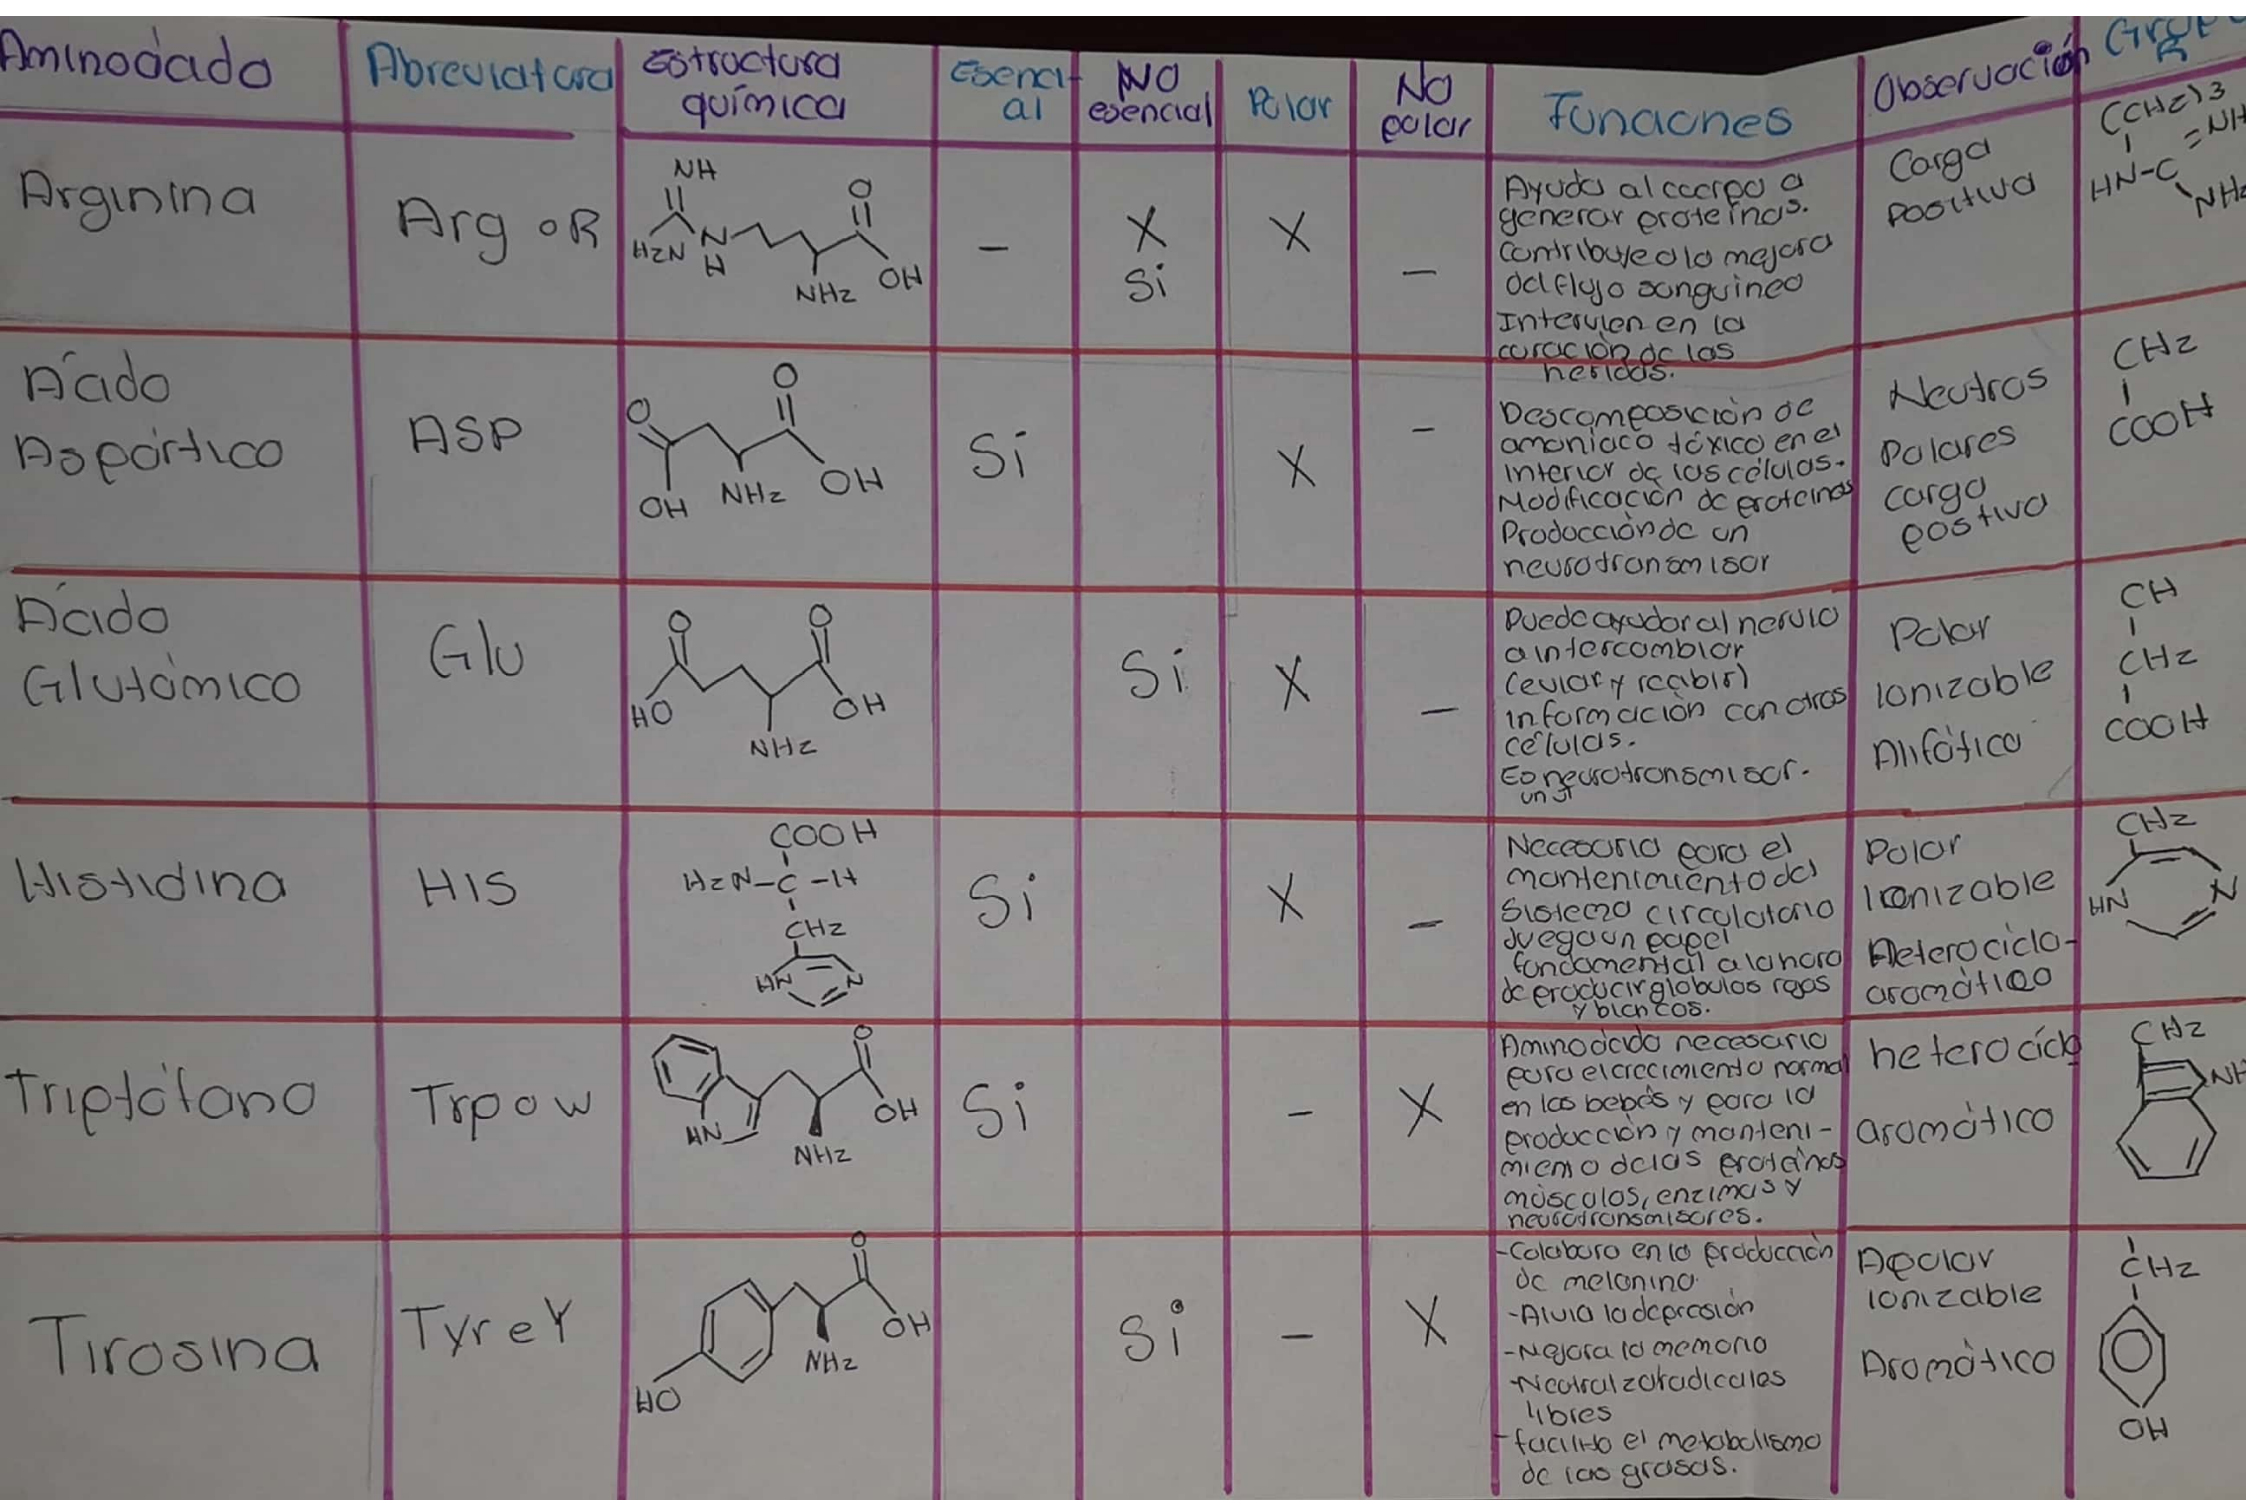 Aminoácido
Abreviatura
Estructura
química
Esenci-
al
NO
esencial
Polar
No
polar
Funciones
Observación
Grupo
R
Arginina
Arg o R
NH
H2N
N
H
O
OH
NH2
-
X
Si
X
-
Ayuda al cuerpo a
generar proteínas.
Contribuye a la mejora
del flujo sanguineo
Intervien en la
curación de las
heridas.
Carga
positiva
(CH2)3
HN-C
=NH
NH2
Ácido
Aspártico
ASP
O
O
OH
NH2
OH
Si
X
-
Descomposición de
amoníaco tóxico en el
interior de las células.
Modificación de proteínas
Producción de un
neurotransmisor
Neutros
Polares
carga
postiva
CH2
COOH
Ácido
Glutámico
Glu
O
O
HO
OH
NH2
Si
X
-
Puede ayudar al nervio
a intercambiar
(enviar y recibir)
información con otras
células.
Es neurotransmisor.
un
Polar
Ionizable
Alifático
CH
CH2
COOH
Histidina
HIS
COOH
H2N-C-H
CH2
HN
N
Si
X
-
Necesaria para el
mantenimiento del
Sistema circulatorio
Juega un papel
fundamental a la hora
de producir glóbulos rojos
y blancos.
Polar
Ionizable
Heterociclo-
aromático
CH2
HN
N
Triptófano
Trp o w
O
OH
HN
NH2
Si
-
X
Aminoácido necesario
para el crecimiento normal
en los bebés y para la
producción y manteni-
miento de las proteínas
músculos, enzimas y
neurotransmisores.
heterociclo
aromático
CH2
NH
Tirosina
Tyr e Y
O
OH
NH2
HO
Si
-
X
-Colabora en la producción
de melanina
-Alivia la depresión
-Mejora la memoria
-Neutraliza radicales
libres
-facilita el metabolismo
de las grasas.
Apolar
ionizable
Aromático
CH2
OH